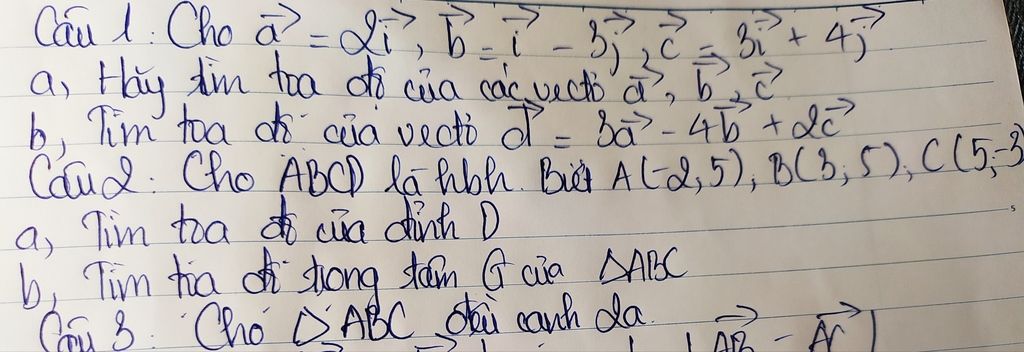 Câu 1: Cho a→ = 2i→, b→ = i→ - 3j→, c→ = 3i→ + 4j→
a, Hãy tìm tọa độ của các vectơ a→, b→, c→
b, Tìm tọa độ của vectơ d→ = 3a→ - 4b→ + 2c→
Câu 2: Cho ABCD là hbh. Biết A(-2,5), B(3;5), C(5;-3
a, Tìm tọa độ của đỉnh D
b, Tìm tọa độ trọng tâm G của ΔABC
Câu 3: Cho ΔABC đều cạnh 2a
AB→ - AC→ |